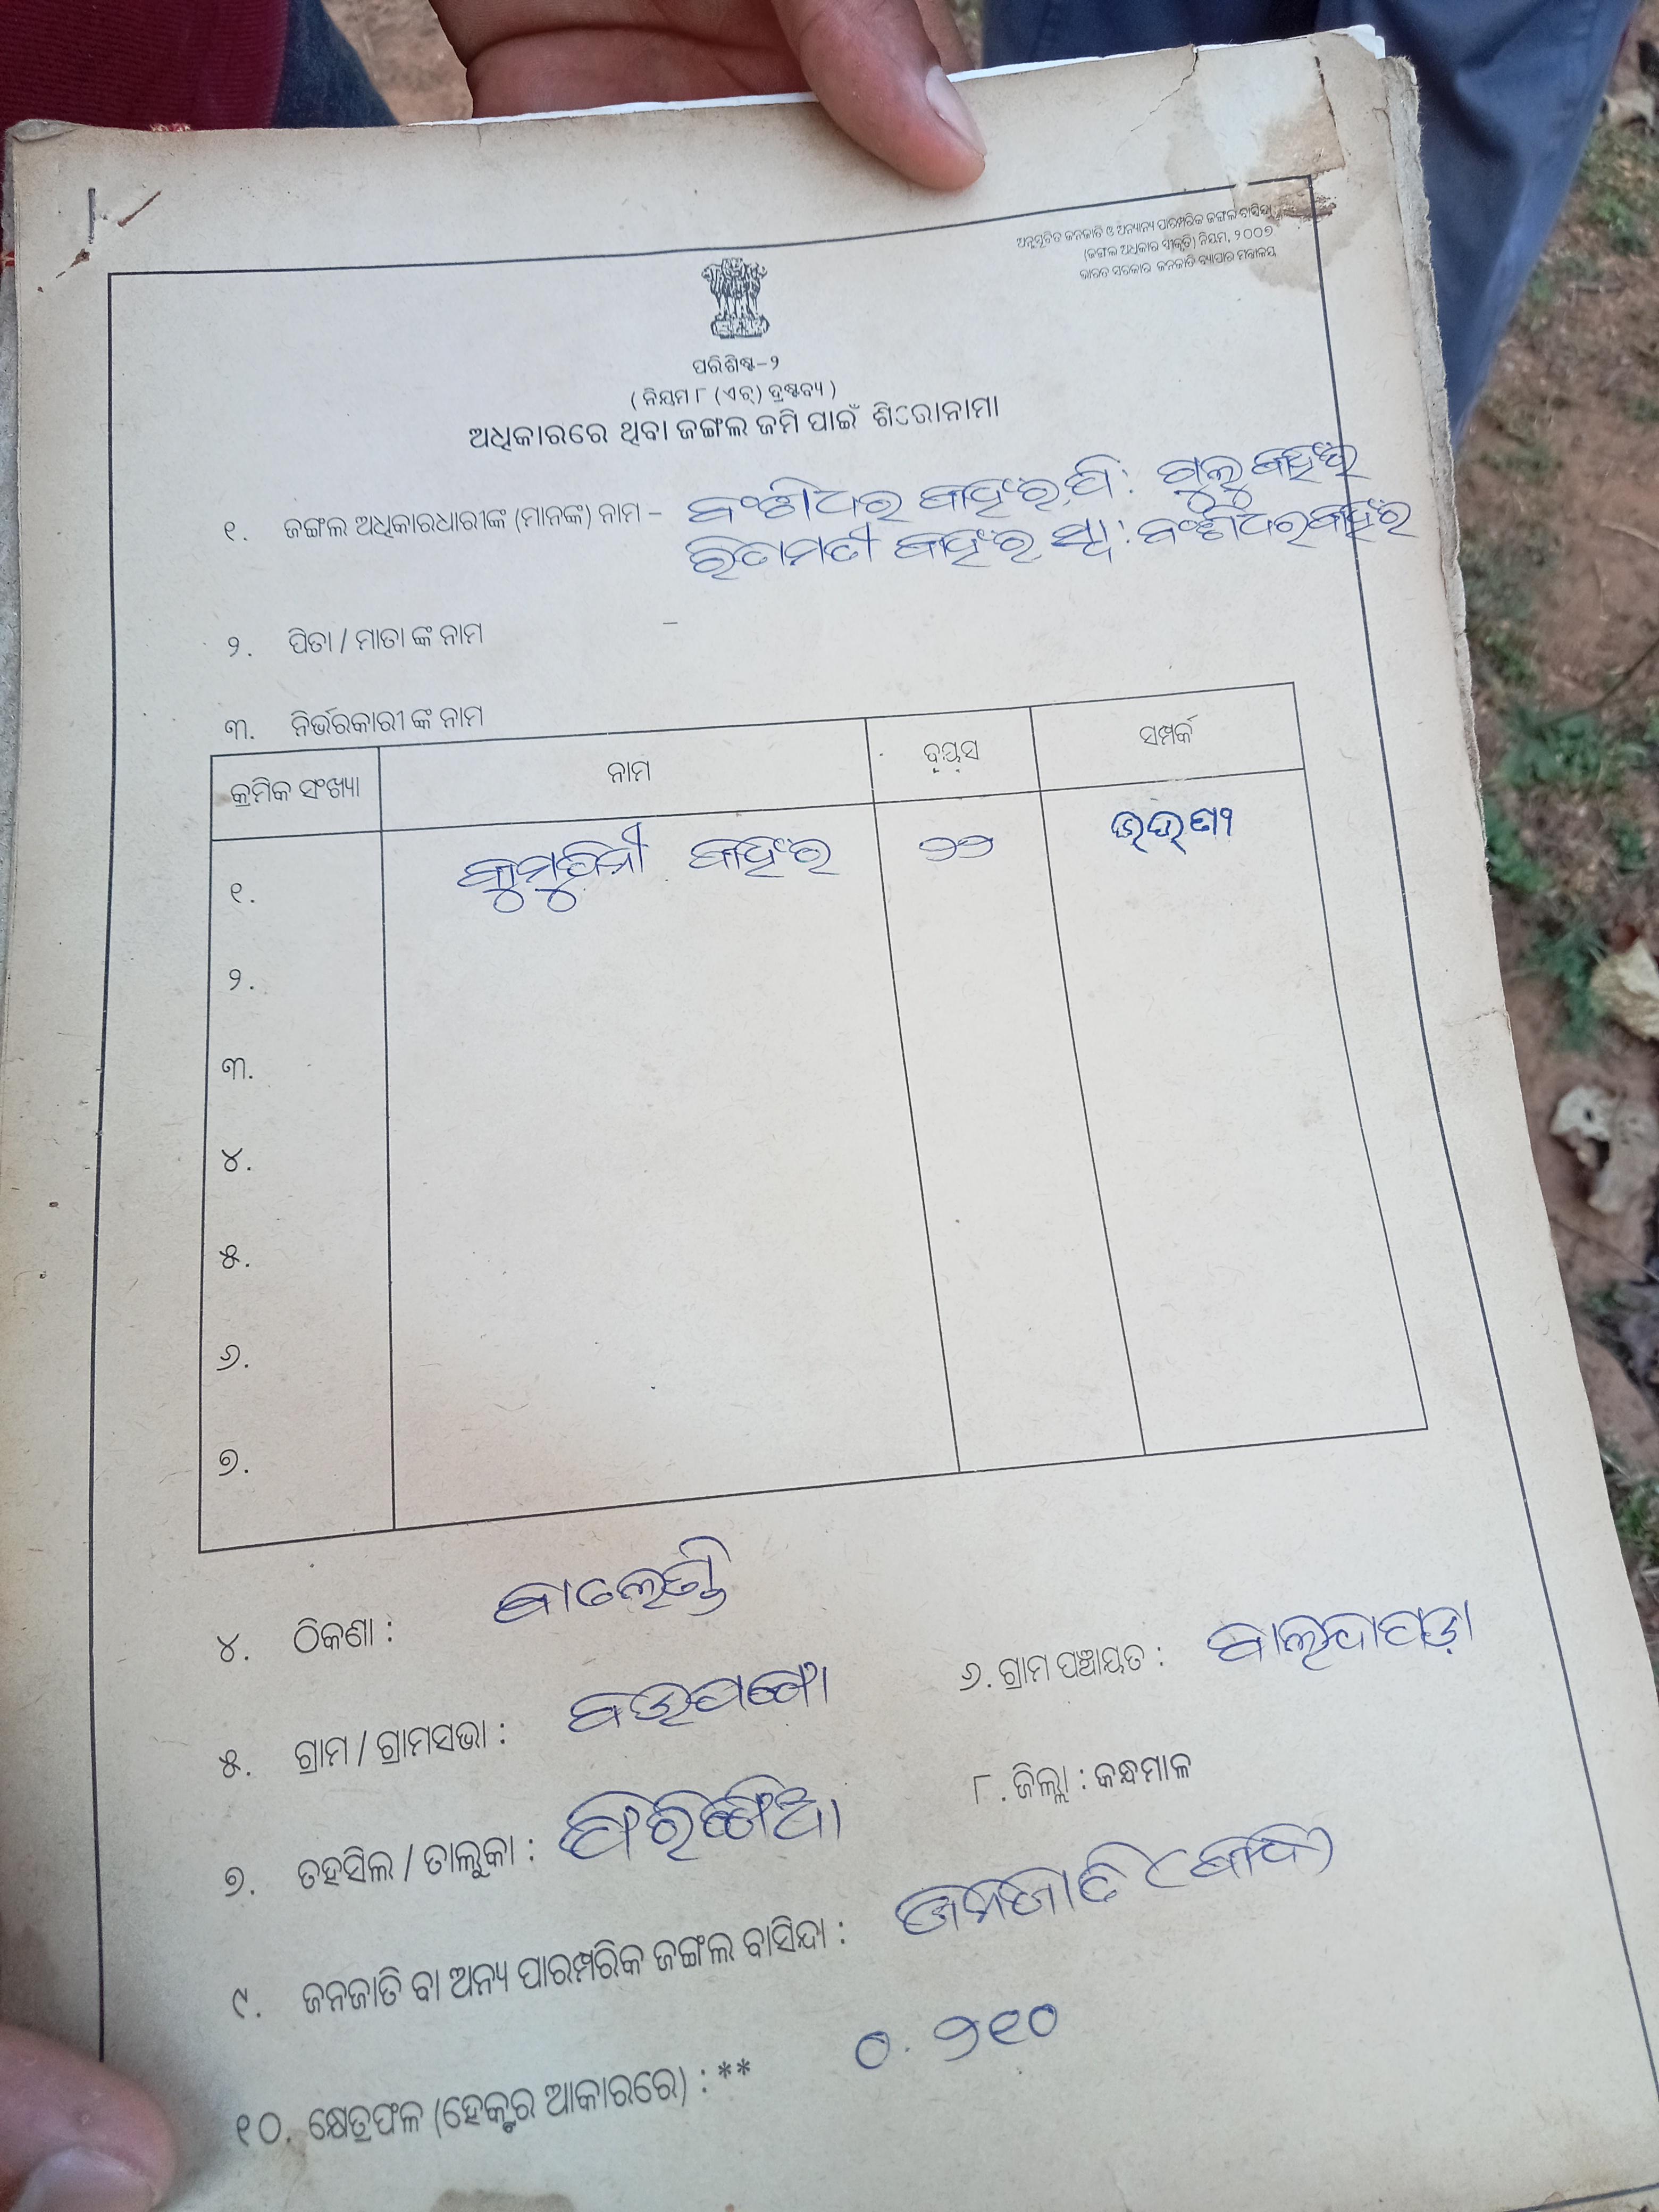 ଅନୁସୂଚିତ ଜନଜାତି ଓ ଅନ୍ୟାନ୍ୟ ପାରମ୍ପରିକ ଜଙ୍ଗଲ ବାସିନ୍ଦା
(ଜଙ୍ଗଲ ଅଧିକାର ସ୍ୱୀକୃତି) ନିୟମ, ୨୦୦୭
ଭାରତ ସରକାର ଜନଜାତି ବ୍ୟାପାର ମନ୍ତ୍ରାଳୟ
ପରିଶିଷ୍ଟ-୨
( ନିୟମ ୮ (ଏଚ୍) ଦ୍ରଷ୍ଟବ୍ୟ )
ଅଧିକାରରେ ଥିବା ଜଙ୍ଗଲ ଜମି ପାଇଁ ଶିରୋନାମା
୧. ଜଙ୍ଗଲ ଅଧିକାରଧାରୀଙ୍କ (ମାନଙ୍କ) ନାମ – ବଂଶୀଧର କହଂର, ପି: ଗୁଲୁ କହଂର
ରିତାମତୀ କହଂର ସ୍ୱା: ବଂଶୀଧର କହଂର
୨. ପିତା / ମାତା ଙ୍କ ନାମ –
୩. ନିର୍ଭରକାରୀ ଙ୍କ ନାମ
କ୍ରମିକ ସଂଖ୍ୟା ନାମ ବୟସ ସମ୍ପର୍କ
୧. କୁମୁଦିନୀ କହଂର ୨୨
୨.
୩.
୪.
୫.
୬.
୭.
୪. ଠିକଣା :
୫. ଗ୍ରାମ / ଗ୍ରାମସଭା : ୬. ଗ୍ରାମ ପଞ୍ଚାୟତ : ବାଲନ୍ଦାପଡ଼ା
୭. ତହସିଲ / ତାଲୁକା : ଫିରିଙ୍ଗିଆ ୮. ଜିଲ୍ଲା : କନ୍ଧମାଳ
୯. ଜନଜାତି ବା ଅନ୍ୟ ପାରମ୍ପରିକ ଜଙ୍ଗଲ ବାସିନ୍ଦା : ଜନଜାତି (କନ୍ଧ)
୧୦. କ୍ଷେତ୍ରଫଳ (ହେକ୍ଟର ଆକାରରେ) : ** ୦.୨୧୦